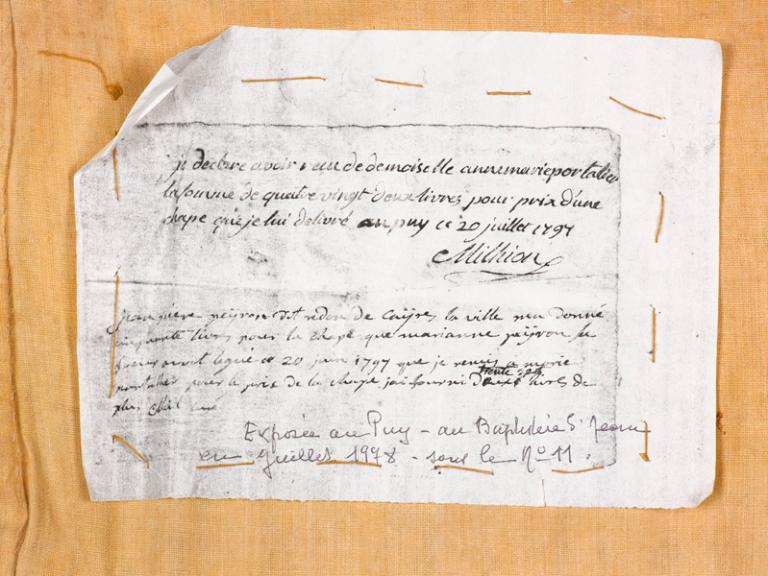 je déclare avoir reçu de demoiselle anne marie portalier
la somme de quatre vingt deux livres pour prix d'une
chape que je lui délivré au puy ce 20 juillet 1797
Milhion
jean pierre peyron dit redon de Cayres la ville m'a donné
cinquante livres pour la chape que marianne peyron sa
soeur avoit legué ce 20 juin 1797 que je remis a marie
portalier pour le prix de la chape j'ai fourni trente deux livres de
plus
Exposée au Puy - au Baptistère St Jean
en Juillet 1998 - sous le No 11.